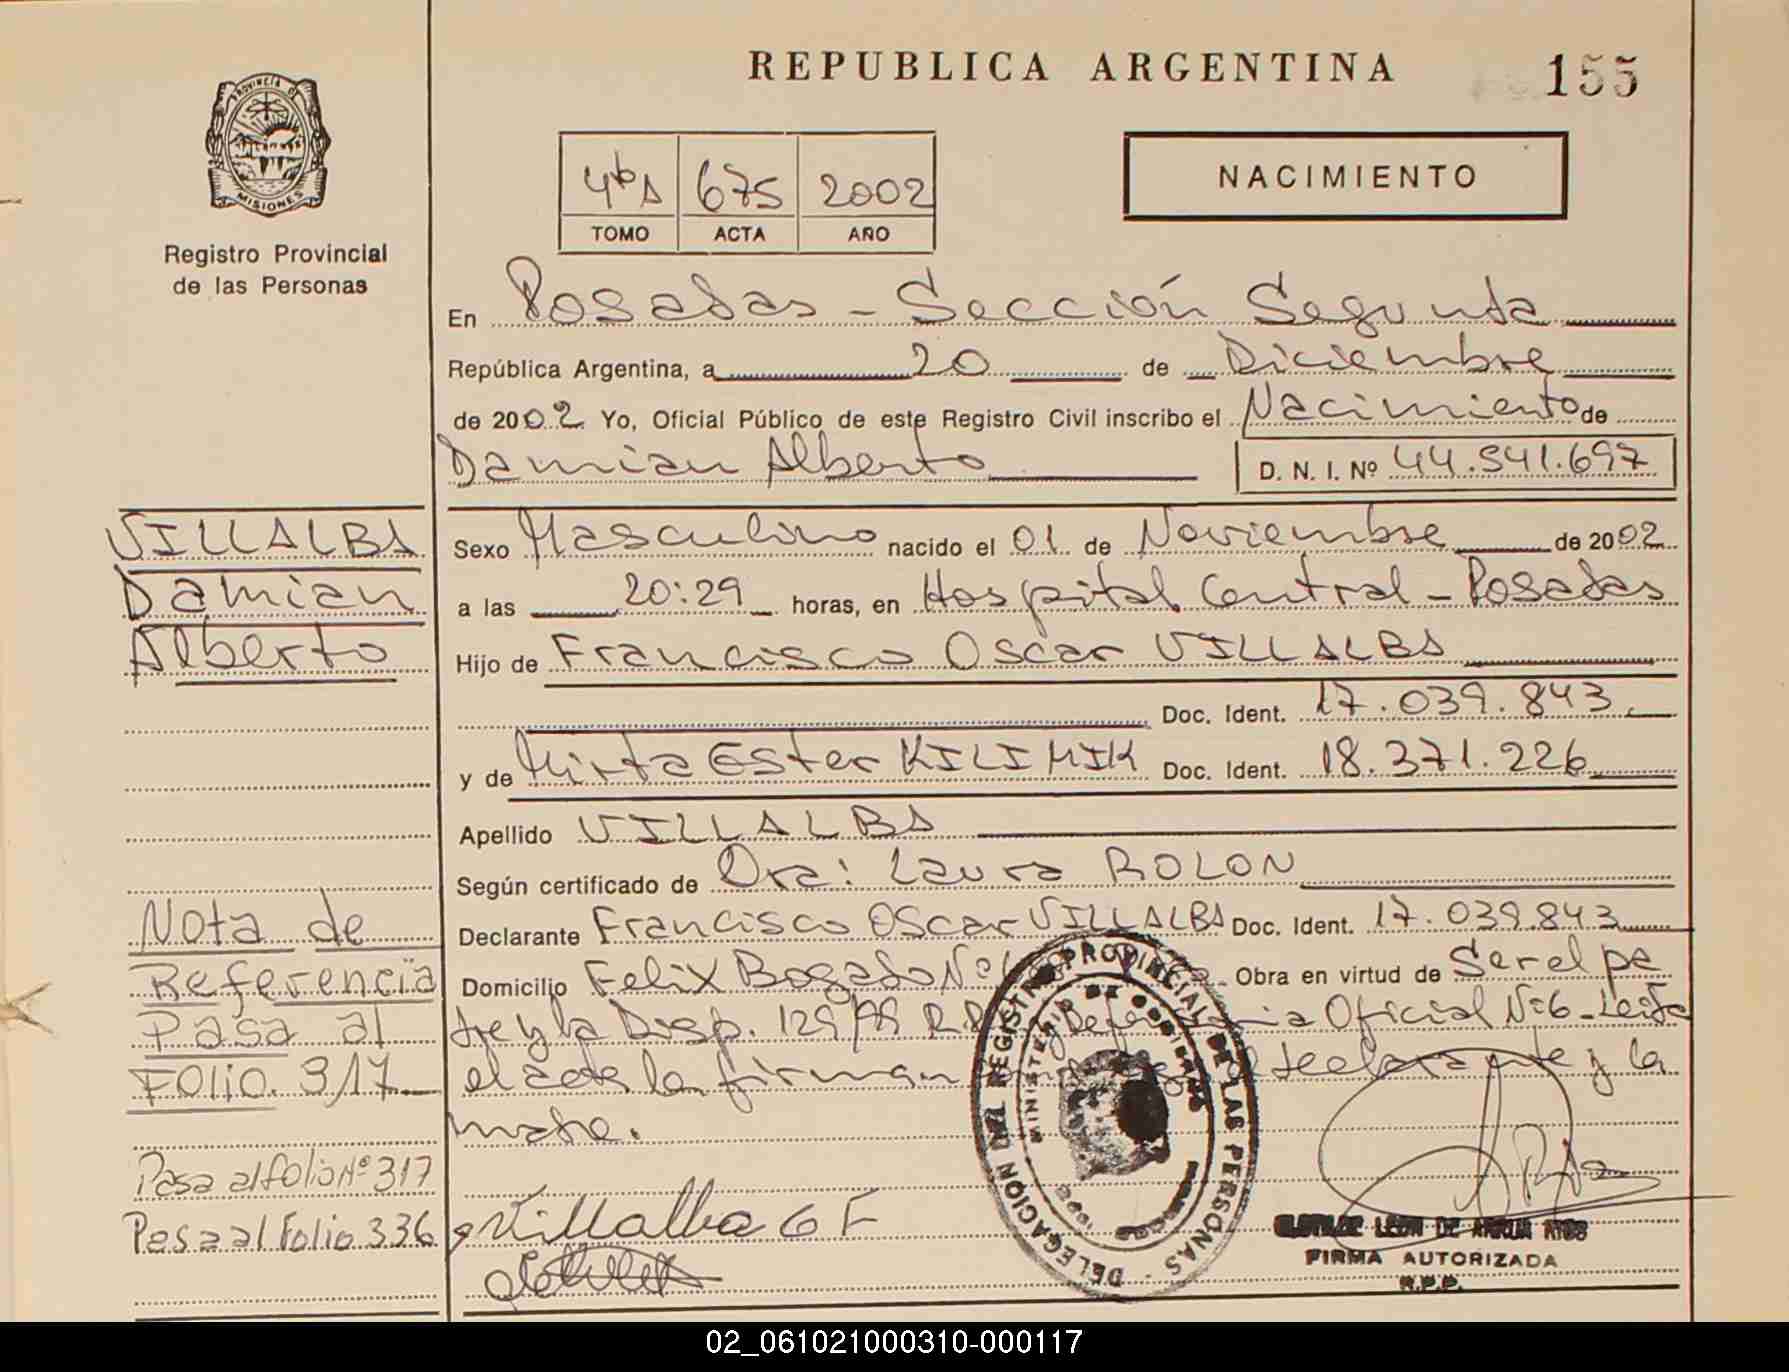 REPUBLICA ARGENTINA
155
PROVINCIA DE
MISIONES
Registro Provincial
de las Personas
4ºbA 675 2002
TOMO ACTA AÑO
NACIMIENTO
En Posadas - Sección Segunda
República Argentina, a 20 de Diciembre
de 2002 Yo, Oficial Público de este Registro Civil inscribo el Nacimiento de
Damian Alberto D. N. I. Nº 44.541.697
Sexo Masculino nacido el 01 de Noviembre de 2002
a las 20:29 horas, en Hospital Central - Posadas
Hijo de Francisco Oscar VILLALBA
Doc. Ident. 17.039.843.
y de Mirta Ester KILIMIK Doc. Ident. 18.371.226
Apellido VILLALBA
Según certificado de Dra: Laura ROLON
Declarante Francisco Oscar VILLALBA Doc. Ident. 17.039.843
Domicilio Felix Bogado Nº Obra en virtud de Ser el pa
dre y la Disp. 129/99 R.P. Oficial Nº6 - Leída
el acta la firman declarante y la
madre.
VILLALBA
Damian
Alberto
Nota de
Referencia
Pasa al
FOLIO. 317
Pasa al folio Nº 317
Pasa al Folio 336
Villalba F
DELEGACION DEL REGISTRO PROVINCIAL DE LAS PERSONAS
MINISTERIO DE GOBIERNO
LEON DE
FIRMA AUTORIZADA
R.P.P.
02_061021000310-000117